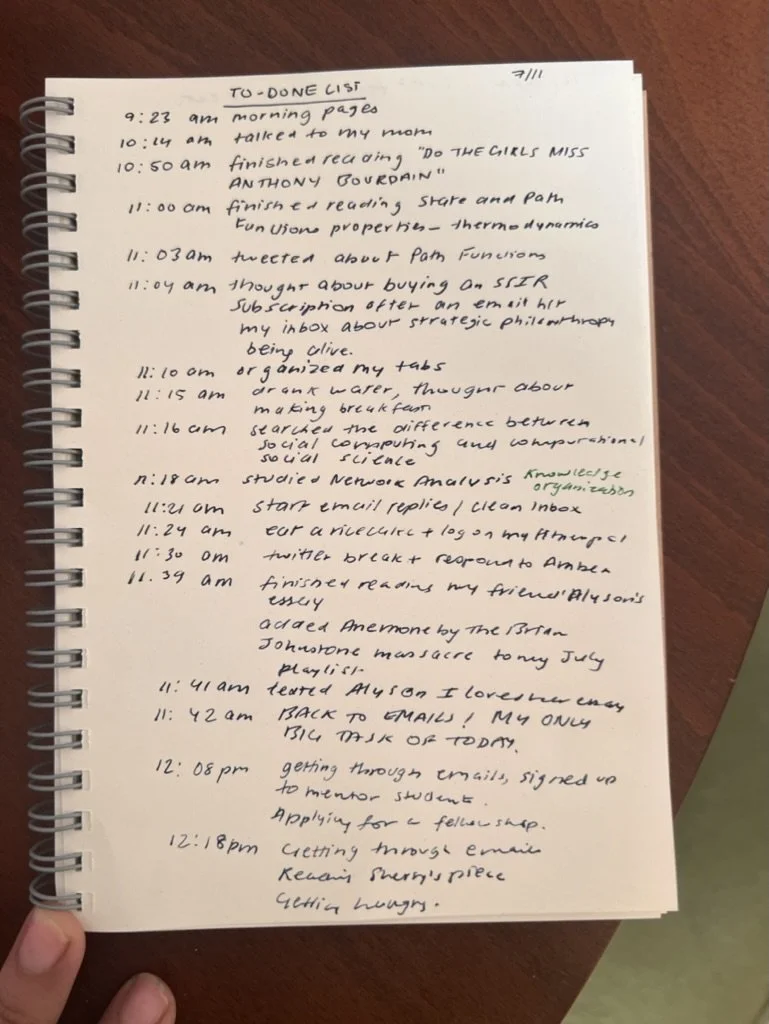 7/11
TO-DONE LIST
9:23 am morning pages
10:14 am talked to my mom
10:50 am finished reading "DO THE GIRLS MISS
ANTHONY BOURDAIN"
11:00 am finished reading State and Path
Functions properties - thermodynamics
11:03 am tweeted about Path Functions
11:04 am thought about buying an SSIR
Subscription after an email hit
my inbox about strategic philanthropy
being alive.
11:10 am organized my tabs
11:15 am drank water, thought about
making breakfast
11:16 am searched the difference between
social computing and computational
social science
11:18 am studied Network Analysis Knowledge
organization
11:21 am start email replies / clean inbox
11:24 am eat a ricecake + log on myfitnesspal
11:30 am twitter break + respond to Amber
11:39 am finished reading my friend Alyson's
essay
added Anemone by The Brian
Johnstone massacre to my July
playlist
11:41 am texted Alyson I loved her essay
11:42 am BACK TO EMAILS! MY ONLY
BIG TASK OF TODAY.
12:08 pm getting through emails, signed up
to mentor student.
Applying for a fellowship.
12:18pm Getting through emails
Reading Sherry's piece
Getting hungry.